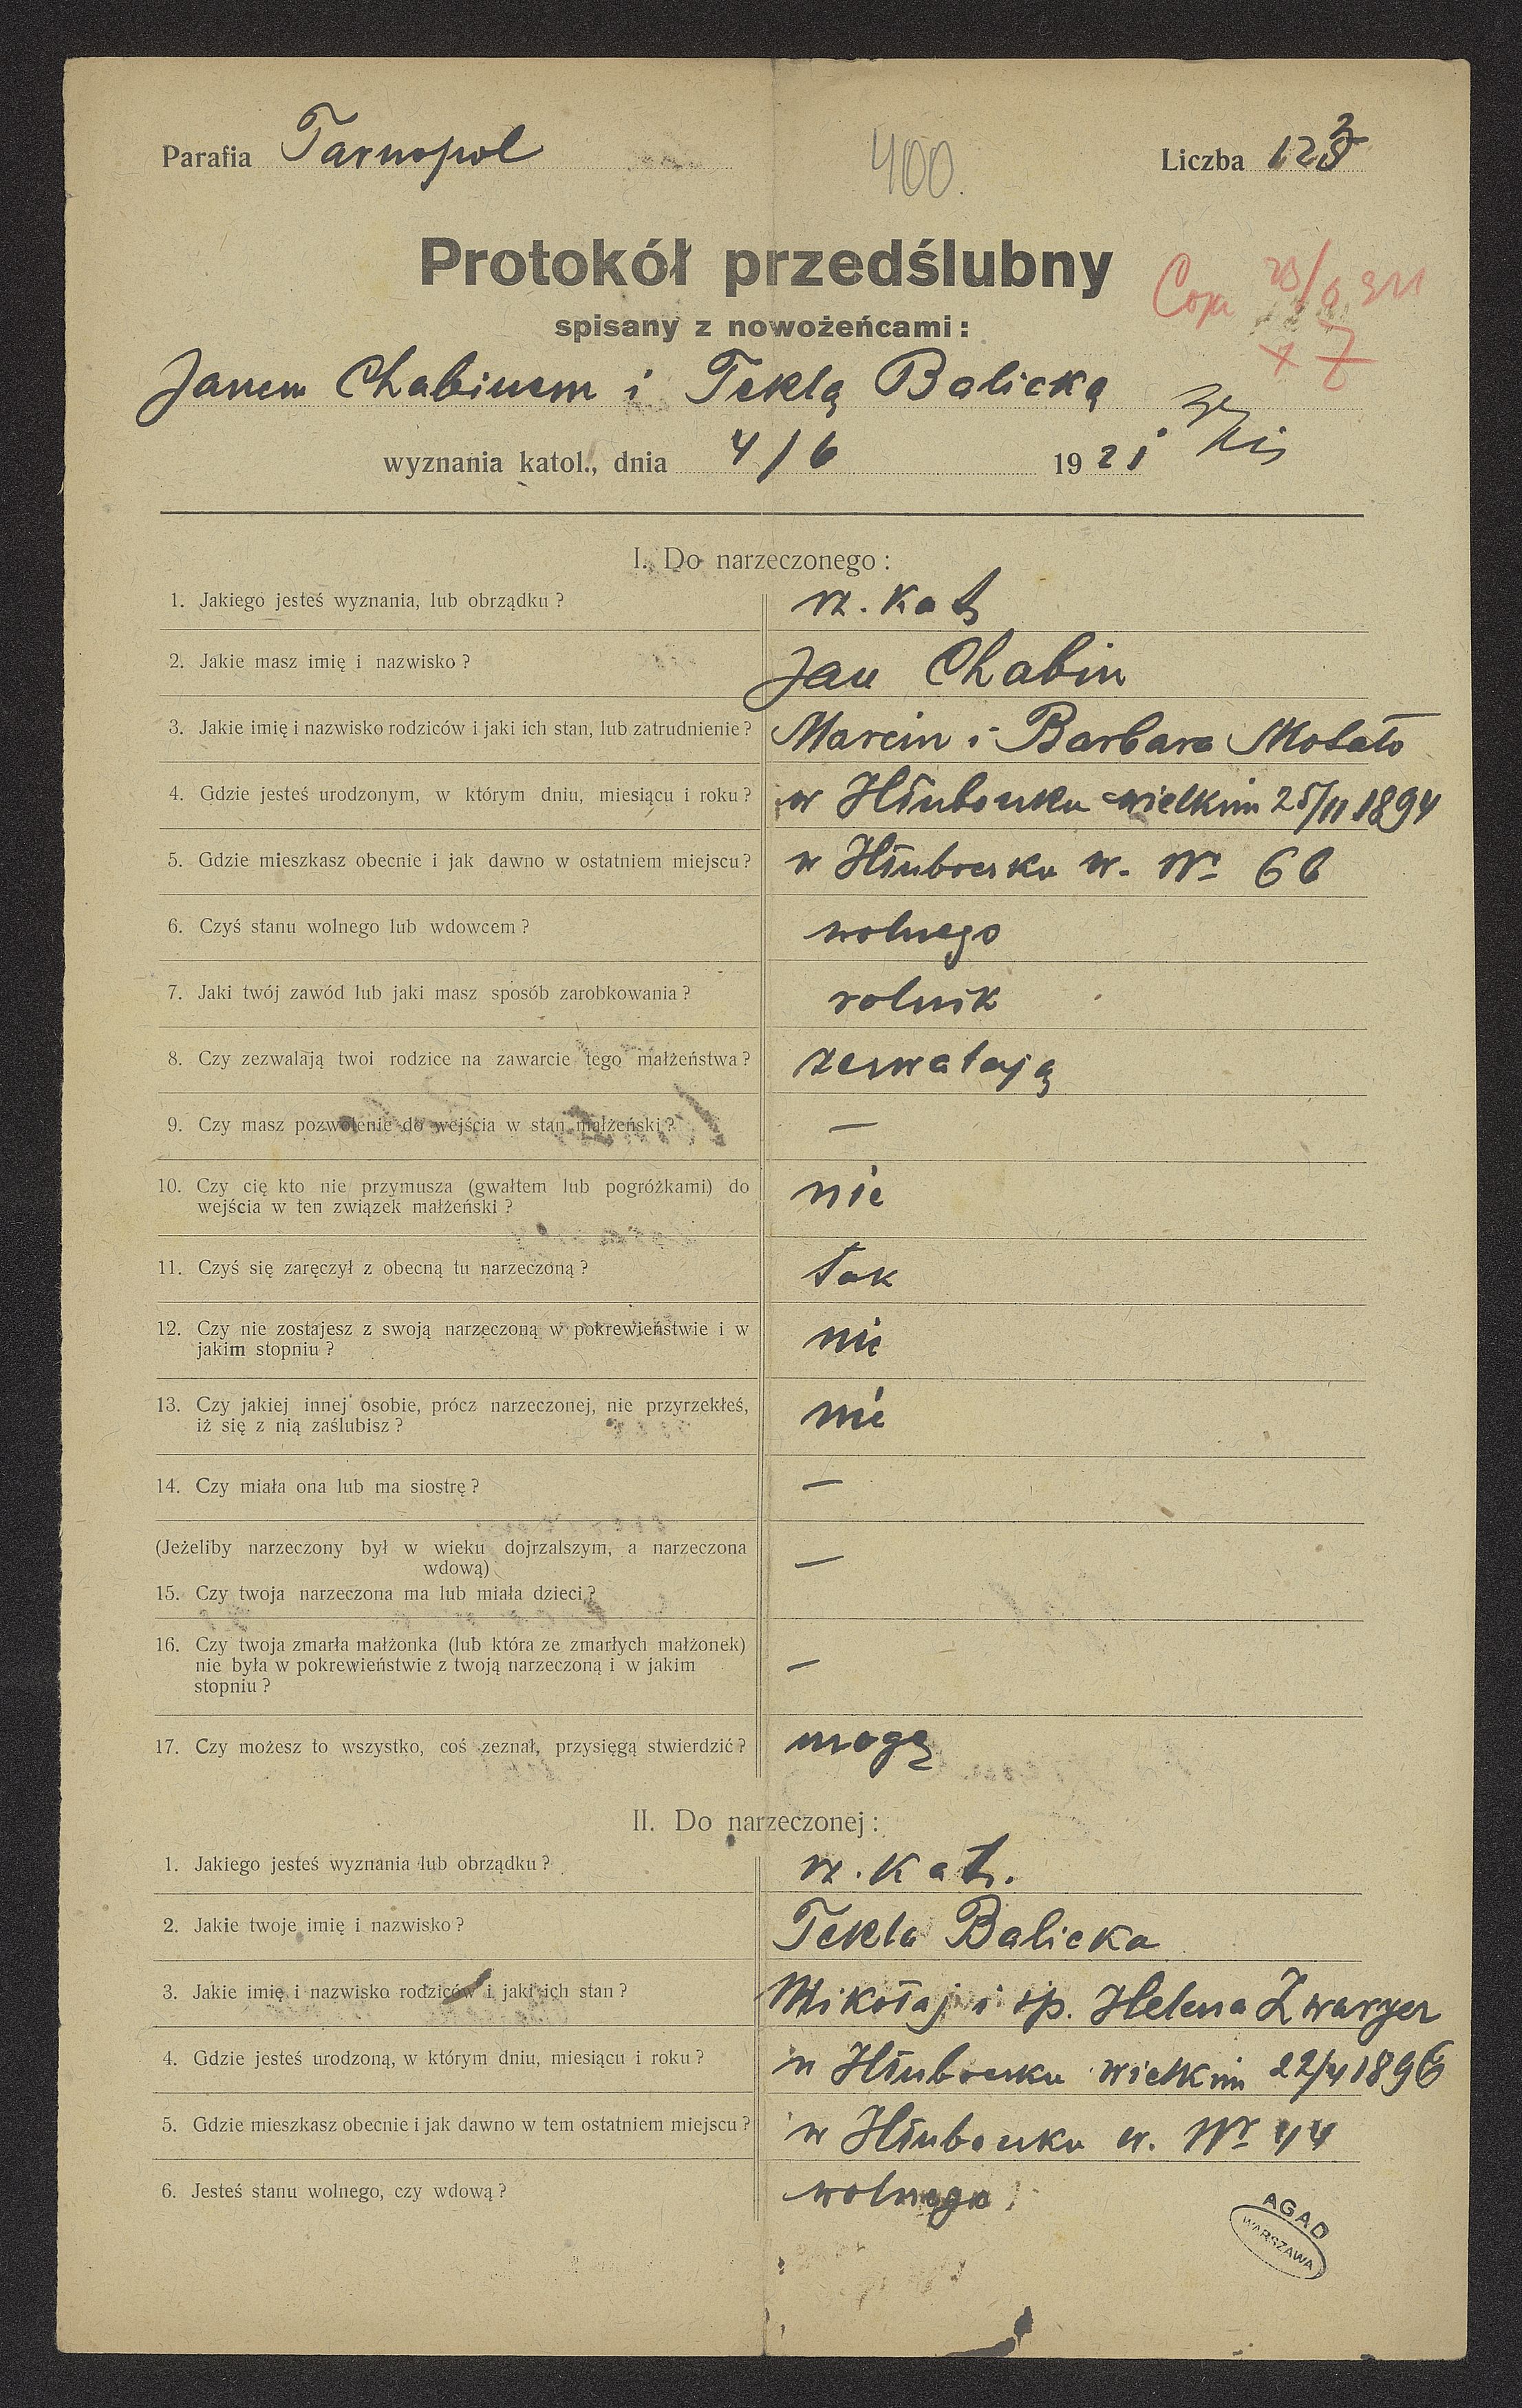 Parafia Tarnopol 400. Liczba 123
Protokół przedślubny
Cop 23/6 921
spisany z nowożeńcami:
Janem Chabinem i Teklą Balicką
wyznania katol., dnia 4/6 1921
I. Do narzeczonego:
1. Jakiego jesteś wyznania, lub obrządku? rz. kat
2. Jakie masz imię i nazwisko? Jan Chabin
3. Jakie imię i nazwisko rodziców i jaki ich stan, lub zatrudnienie? Marcin i Barbara
4. Gdzie jesteś urodzonym, w którym dniu, miesiącu i roku? w Hłuboczku wielkim 25/11 1894
5. Gdzie mieszkasz obecnie i jak dawno w ostatniem miejscu? w Hłuboczku w. Nr 66
6. Czyś stanu wolnego lub wdowcem? wolnego
7. Jaki twój zawód lub jaki masz sposób zarobkowania? rolnik
8. Czy zezwalają twoi rodzice na zawarcie tego małżeństwa? zezwalają
9. Czy masz pozwolenie do wejścia w stan małżeński? —
10. Czy cię kto nie przymusza (gwałtem lub pogróżkami) do nie
wejścia w ten związek małżeński?
11. Czyś się zaręczył z obecną tu narzeczoną? tak
12. Czy nie zostajesz z swoją narzeczoną w pokrewieństwie i w nie
jakim stopniu?
13. Czy jakiej innej osobie, prócz narzeczonej, nie przyrzekłeś, nie
iż się z nią zaślubisz?
14. Czy miała ona lub ma siostrę? —
(Jeżeliby narzeczony był w wieku dojrzalszym, a narzeczona —
wdową)
15. Czy twoja narzeczona ma lub miała dzieci?
16. Czy twoja zmarła małżonka (lub która ze zmarłych małżonek)
nie była w pokrewieństwie z twoją narzeczoną i w jakim —
stopniu?
17. Czy możesz to wszystko, coś zeznał, przysięgą stwierdzić? mogę
II. Do narzeczonej:
1. Jakiego jesteś wyznania lub obrządku? rz. kat.
2. Jakie twoje imię i nazwisko? Tekla Balicka
3. Jakie imię i nazwisko rodziców i jaki ich stan? Mikołaj i śp. Helena Zwarycz
4. Gdzie jesteś urodzoną, w którym dniu, miesiącu i roku? w Hłuboczku wielkim 22/4 1896
5. Gdzie mieszkasz obecnie i jak dawno w tem ostatniem miejscu? w Hłuboczku w. Nr 44
6. Jesteś stanu wolnego, czy wdową? wolnego
AGAD
WARSZAWA